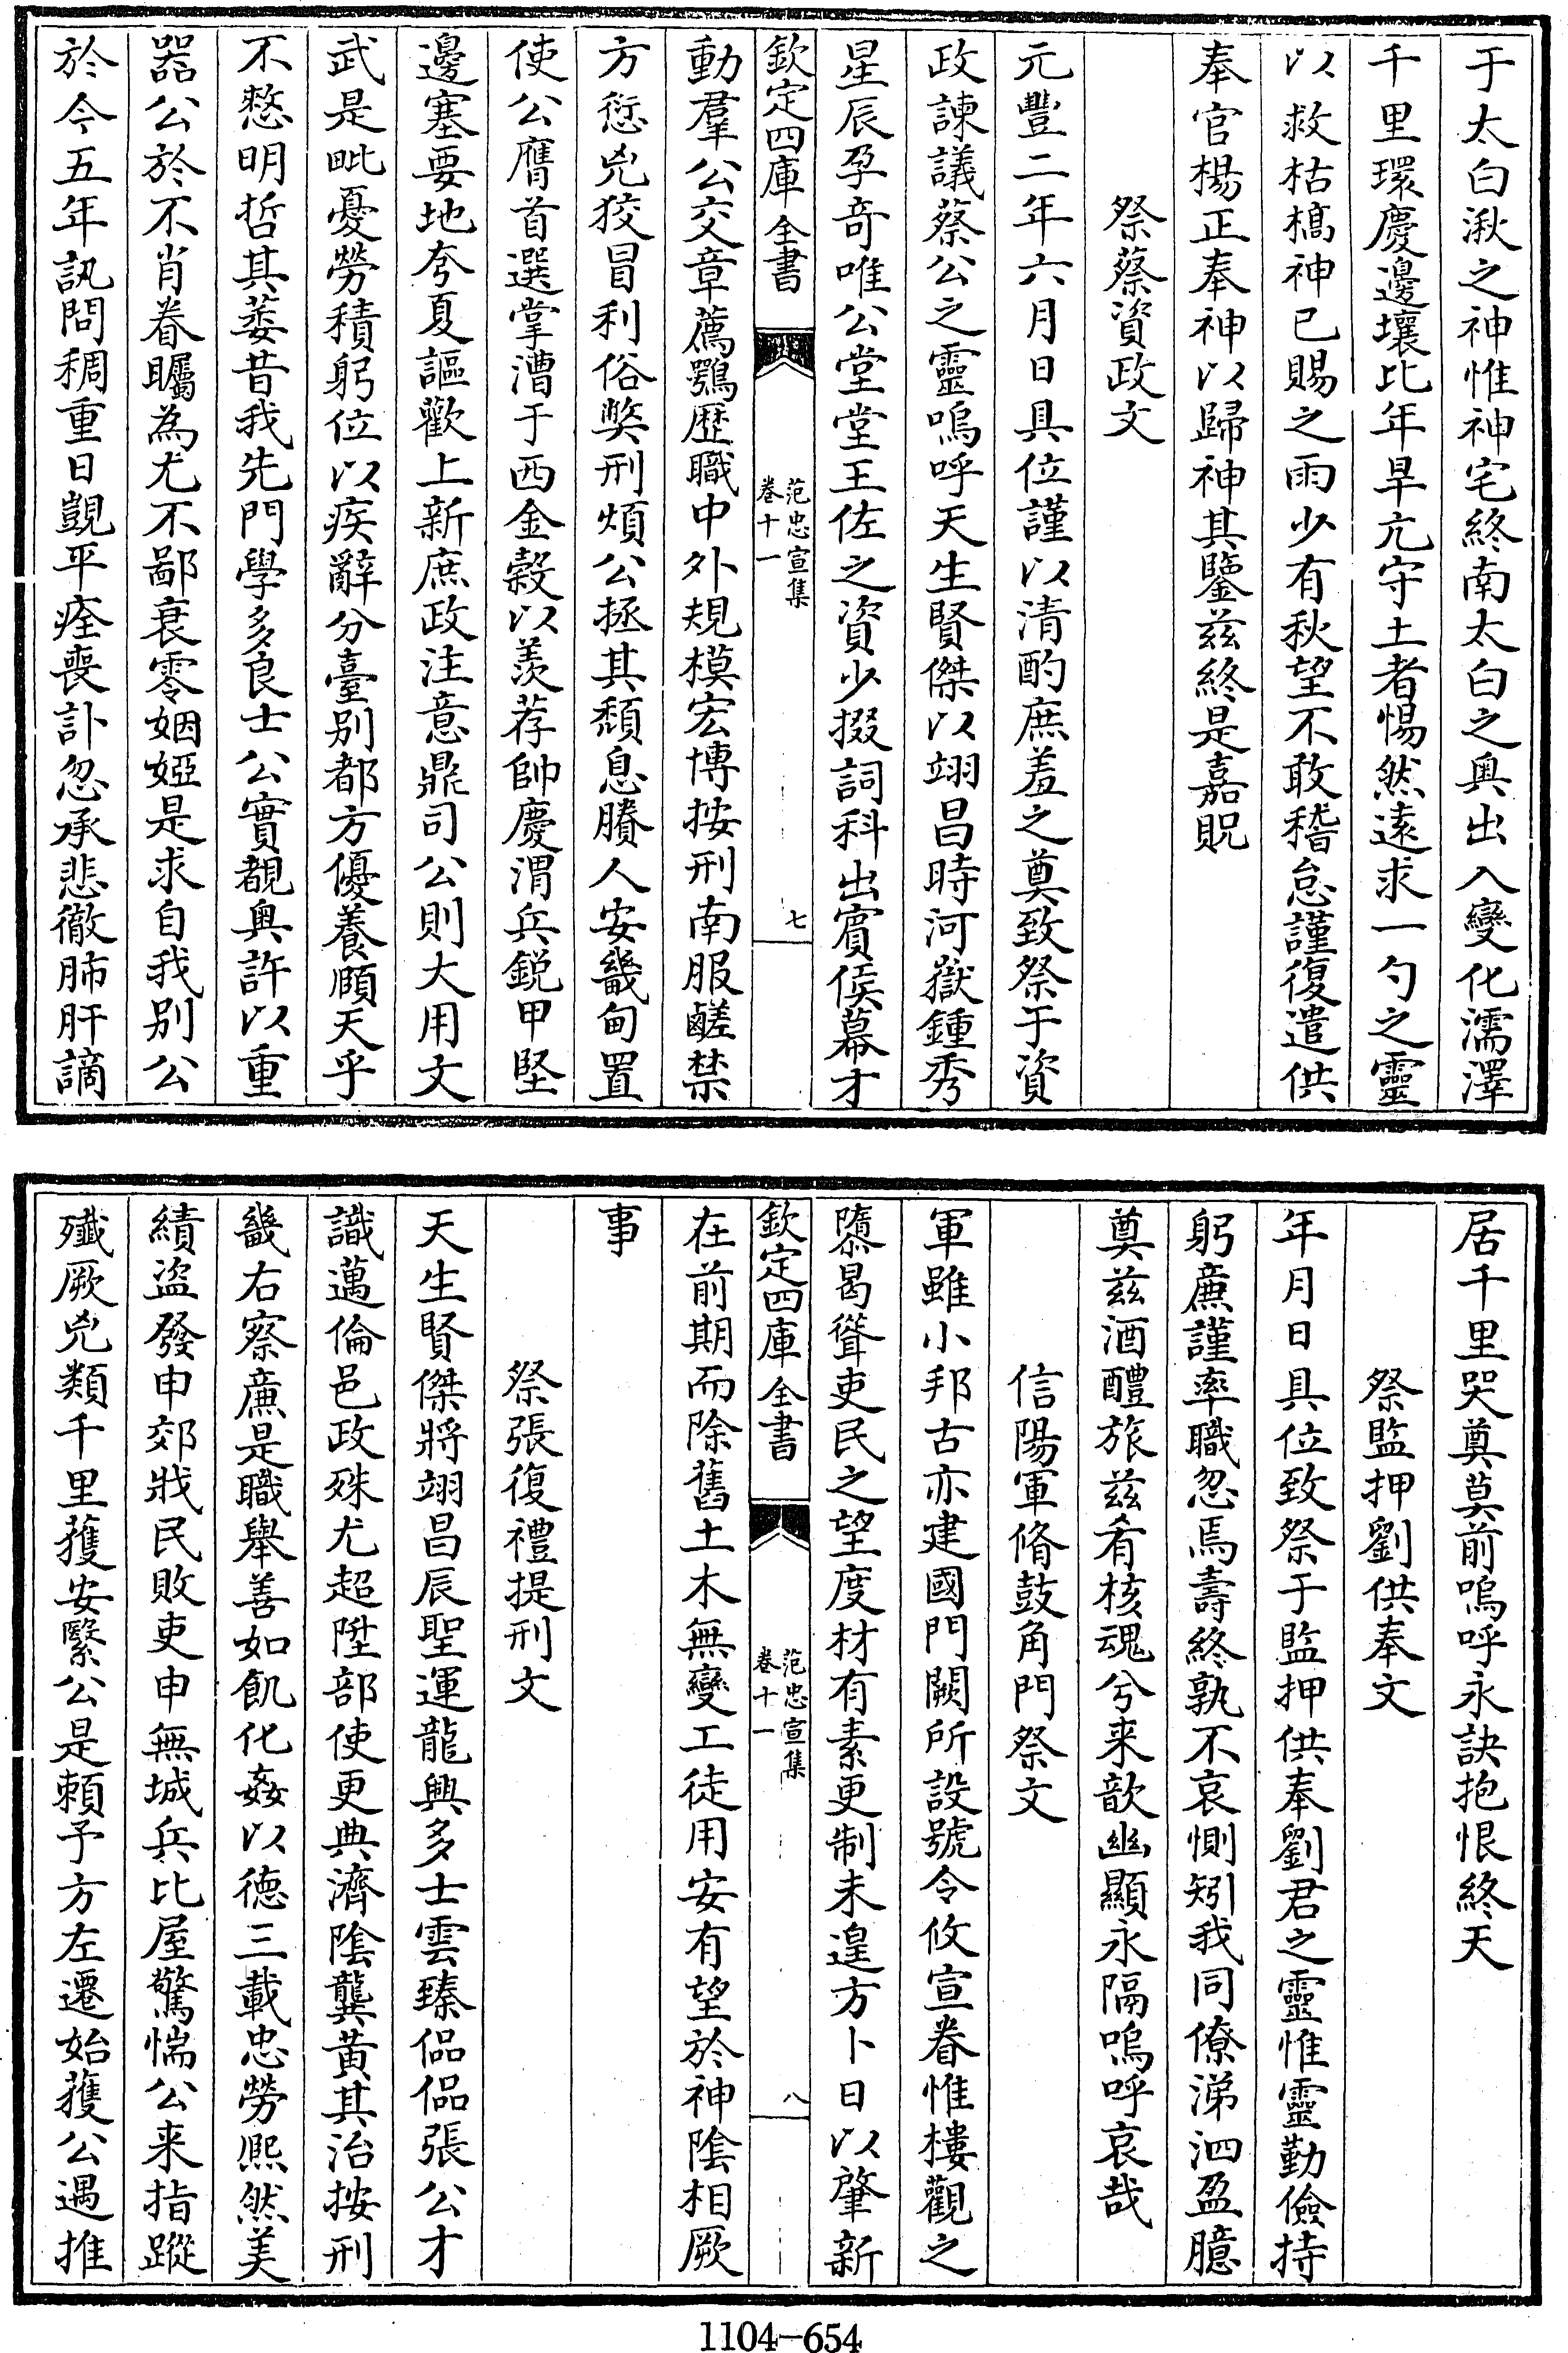 于太白湫之神惟神宅終南太白之奥出入變化濡澤
千里環慶邊壤比年旱亢守土者惕然遠求一勺之靈
以救枯槁神已賜之雨少有秋望不敢稽怠謹復遣供
奉官楊正奉神以歸神其鑒兹終是嘉貺
祭蔡資政文
元豐二年六月日具位謹以清酌庶羞之奠致祭于資
政諫議蔡公之靈嗚呼天生賢傑以翊昌時河嶽鍾秀
星辰孕奇唯公堂堂王佐之資少掇詞科出賓侯幕才
欽定四庫全書
范忠宣集
卷十一
七
動羣公交章薦鶚歴職中外規模宏博按刑南服鹾禁
方愆兇狡冒利俗獘刑煩公拯其頽息賸人安畿甸置
使公膺首選掌漕于西金穀以羨荐帥慶渭兵鋭甲堅
邊塞要地夸夏謳歡上新庶政注意鼎司公則大用文
武是毗憂勞積躬位以疾辭分臺别都方優養頤天乎
不憗明哲其萎昔我先門學多良士公實覩奥許以重
器公於不肖眷矚為尤不鄙衰零姻婭是求自我别公
於今五年訊問稠重日覬平痊喪訃忽承悲徹肺肝謫
居千里哭奠莫前嗚呼永訣抱恨終天
祭監押劉供奉文
年月日具位致祭于監押供奉劉君之靈惟靈勤儉持
躬亷謹率職忽焉壽終孰不哀惻矧我同僚涕泗盈臆
奠兹酒醴旅兹肴核魂兮来歆幽顯永隔嗚呼哀哉
信陽軍脩鼓角門祭文
軍雖小邦古亦建國門闕所設號令攸宣眷惟樓觀之
隳曷聳吏民之望度材有素更制未遑方卜日以肇新
欽定四庫全書
范忠宣集
卷十一
八
在前期而除舊土木無變工徒用安有望於神隂相厥
事
祭張復禮提刑文
天生賢傑將翊昌辰聖運龍興多士雲臻偘偘張公才
識邁倫邑政殊尤超陞部使更典濟隂龔黄其治按刑
畿右察亷是職舉善如飢化姦以徳三載忠勞熈然美
績盗發申郊戕民敗吏申無城兵比屋驚惴公来指蹤
殲厥兇類千里獲安繄公是頼予方左遷始獲公遇推
1104-654